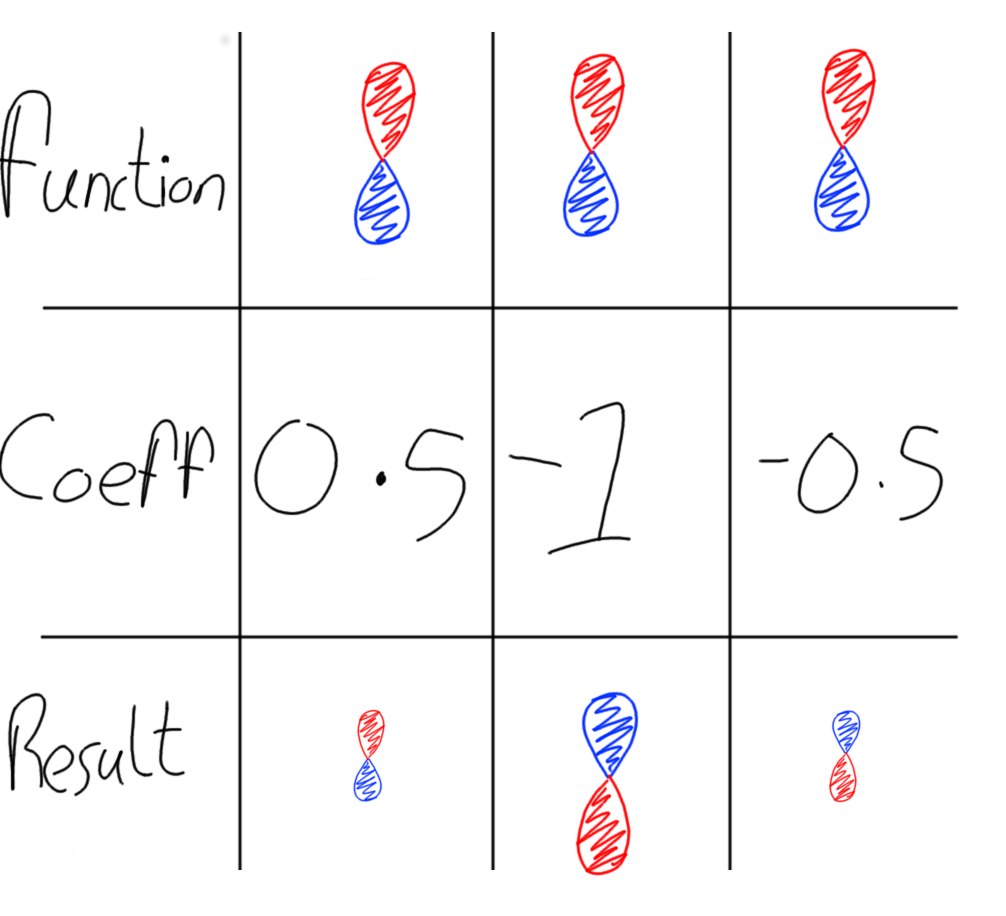 Function
Coeff 0.5 -1 -0.5
Result